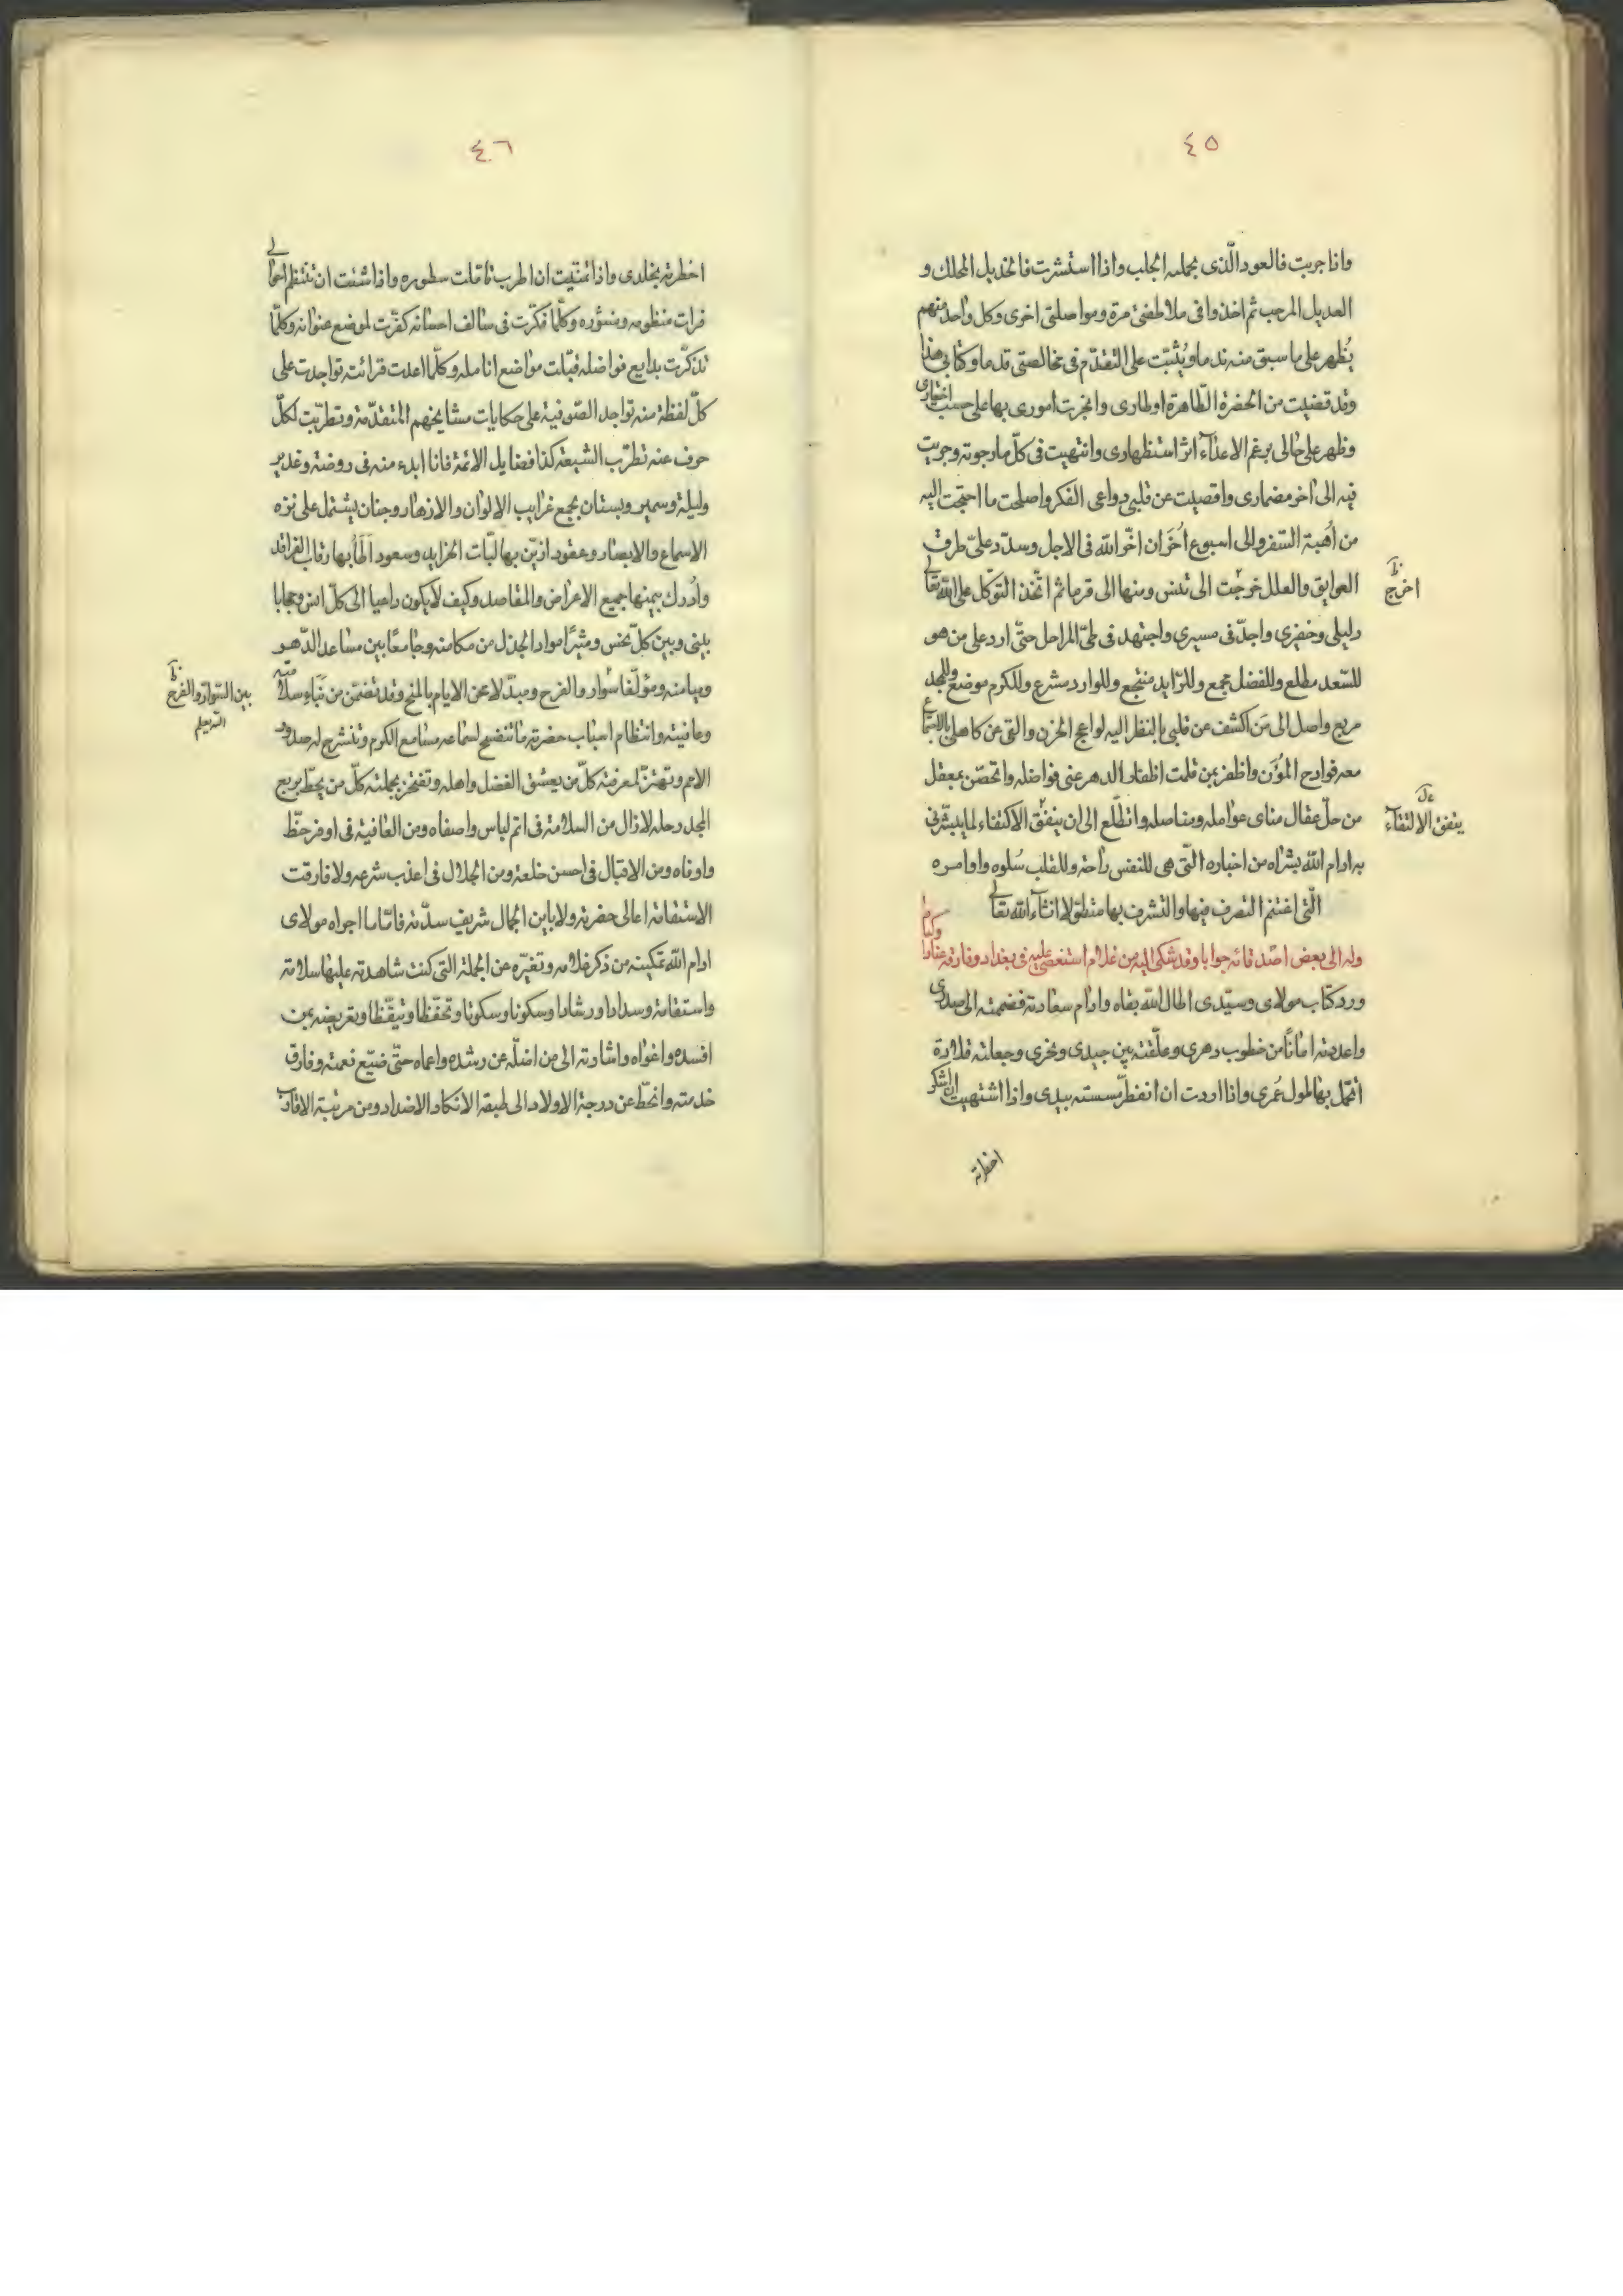 ٤٥
واذا جربت فالعود الّذى بجملة الجلب واذا استشرت فالخديل المحلك و
العديل المرحب ثم اخذوا فى ملاطفتى مرة ومواصلتى اخرى وكل واحد منهم
يُظهر على ما سبق منه ندما ويُثبت على التقدّم فى مخالصتى قدما وكتابى هذا
وقد قضيت من الحضرة الطّاهرة اوطارى وانجزت امورى بها على حسب اختيارى
وظهر على حالى برغم الاعدآء اثر استظهارى وانتهيت فى كلّ ما رجوته وجريت
فيه الى اخر مضمارى واقصيت عن قلبى دواعى الفكر واصلحت ما احتجت اليه
من اُهبة السّفر والى اسبوع اُخَر ان اخّر الله فى الاجل وسدّد علىّ طرق
العوايق والعلل خرجت الى تدنس ومنها الى قرما ثم اتّخذ التوكّل على الله تعالى
دليلى وخفيرى واجدّ فى مسيرى واجتهد فى طىّ المراحل حتّى ارد على من هو
للسّعد مطلع وللفضل مجمع وللزايد منتجع وللوارد مشرع وللكرم موضع وللمجد
مربع واصل الى مَن اكشف عن قلبى بالنظر اليه لواعج الحزن والقى عن كاهلى بالاجتماع
معه فوادح المُؤَن واظفر بمن قلمت اظفار الدهر عنى فواضله واتحصّن بمعقل
من حلّ عقال مناى عوامله ومناصله واتطلّع الى ان يتفق الاكتفاء لما يبشّرنى
به ادام الله بشراه من اخباره الّتى هى للنفس راحة وللقلب سُلوه واوامره
الّتى اغتنم التصرف فيها والتشرف بها متطوّلا انشآء الله تعالى
وله الى بعض اصدقائه جوابا وقد شكى اليه من غلام استعصى عليه فى بغداد وفارقه عنادا
ورد كتاب مولاى وسيّدى اطال الله بقاه وادام سعادته فضممته الى صدرى
واعددته امانًا من خطوب دهرى وعلّقته بين جيدى ونحرى وجعلته قلادة
اتجمّل بها طول عُمرى واذا اردت ان اتفطّر مسسته بيدى واذا اشتهيت ان اشكر
اخطرته
اخرج
يتفق الالتقآء
٤٦
اخطرته بخلدى واذا تمنّيت ان اطرب تاملت سطوره واذا شئت ان تنتظم احوالى
قرات منظومه ومنثوره وكلّما فكّرت فى سالف احسانه كفّرت لموضع عنوانه وكلّما
تذكّرت بدايع فواضله قبّلت مواضع انامله وكلّما اعدت قرائته تواجدت على
كلّ لفظة منه تواجد الصّوفية على حكايات مشايخهم المتقدّمة وتطرّبت لكلّ
حرف عنه تطرّب الشيعة كذا فضايل الائمة فانا ابدء منه فى روضة وغدير
وليلة وسمير وبستان يجمع غرايب الالوان والازهار وجنان يشتمل على نزه
الاسماع والابصار وعقود ازيّن بها لبّات الخرايد وسعود اَطَأُ بها رقاب الفراقد
واُدرك بيمنها جميع الاعراض والمقاصد وكيف لا يكون داعيا الى كلّ انس وحجابا
بينى وبين كلّ نحس ومثيرًا مواد الجذل من مكامنه وجامعًا بين مساعد الدّهر
وميامنه ومؤلّفا سوار والفرح ومبدّلا عن الايام بالمنح وقد تضمّن من نباء سلامته
وعافيته وانتظام اسباب حضرته ما تنفسح لسماعه مسامع الكرم وتنشرح له صدور
الامم وتهتزّ لمعرفته كلّ من يعشق الفضل واهله وتفتخر بجملته كلّ من يحطّ بربع
المجد رحله لازال من السلامة فى اتم لباس واصفاه ومن العافية فى اوفر حظّ
واوفاه ومن الاقبال فى احسن خلعة ومن الجلال فى اعذب شرعه ولا فارقت
الاستقامة اعالى حضرته ولا باين الجمال شريف سدّته فامّا ما اجراه مولاى
ادام الله تمكينه من ذكر غلامه وتغيّره عن الجملة التى كنت شاهدته عليها سلامة
واستقامة وسدادا ورشادا وسكونا وسكوتا وتحفّظا وتيقّظا وتعريضه بمن
افسده واغواه واشارته الى من اضلّه عن رشده واعماه حتّى ضيّع نعمته وفارق
خدمته وانحطّ عن درجة الاولاد الى طبقة الانكاد الاضداد ومن مرتبة الاقارب
بين السّوار والفرح